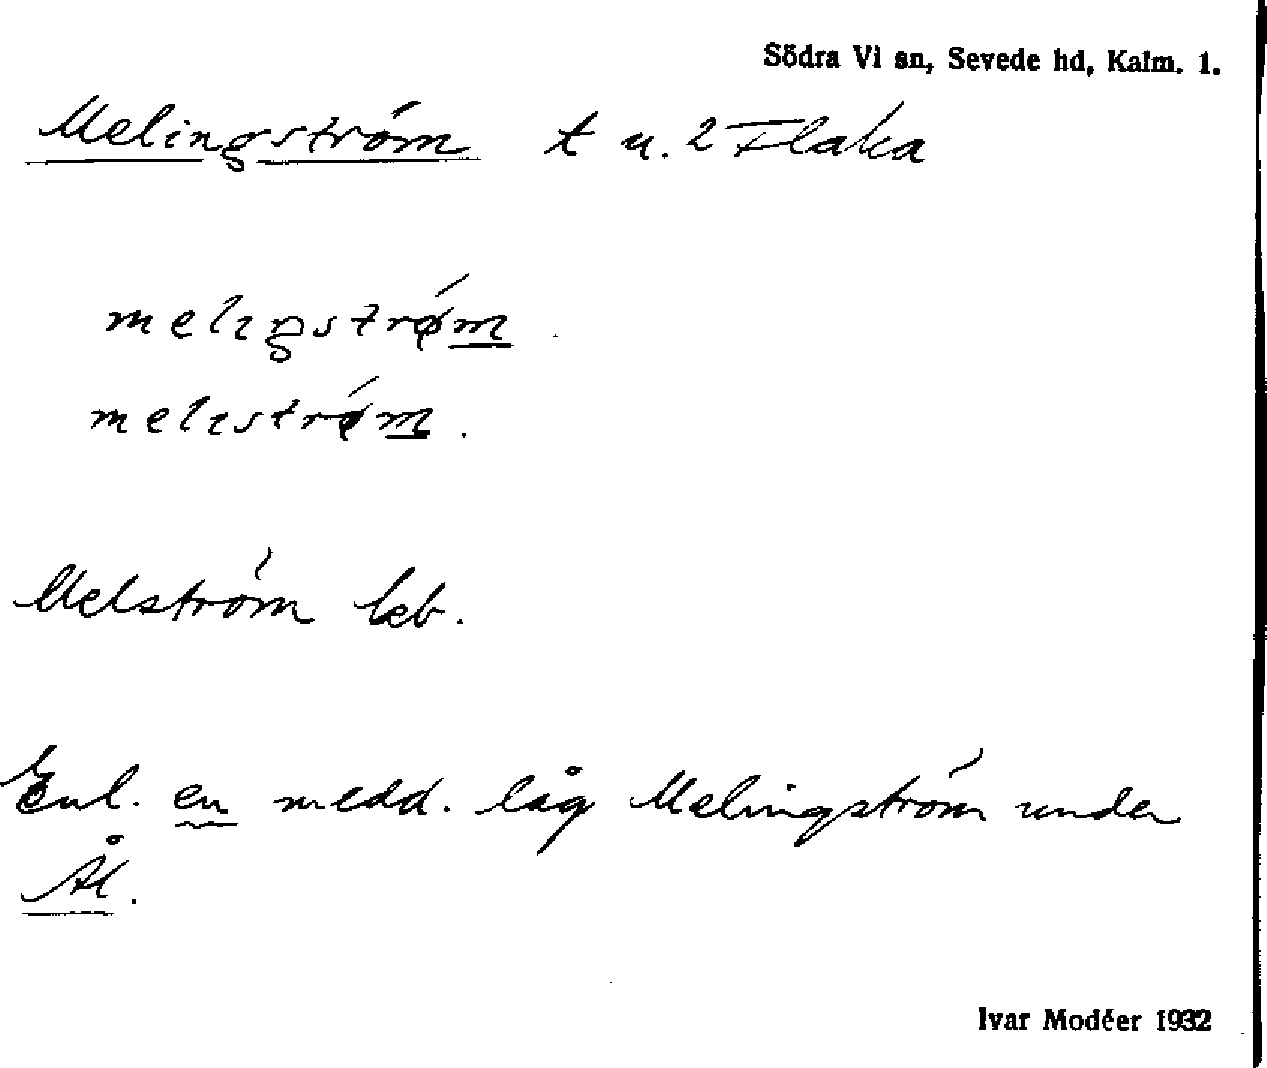 Södra Vi sn, Sevede hd, Kalm. l.
Melingström t u. 2 Flaka
melıŋström
melıström.
Melström leb.
Enl. en medd. låg Melingström under
Ål.
Ivar Modéer 1932